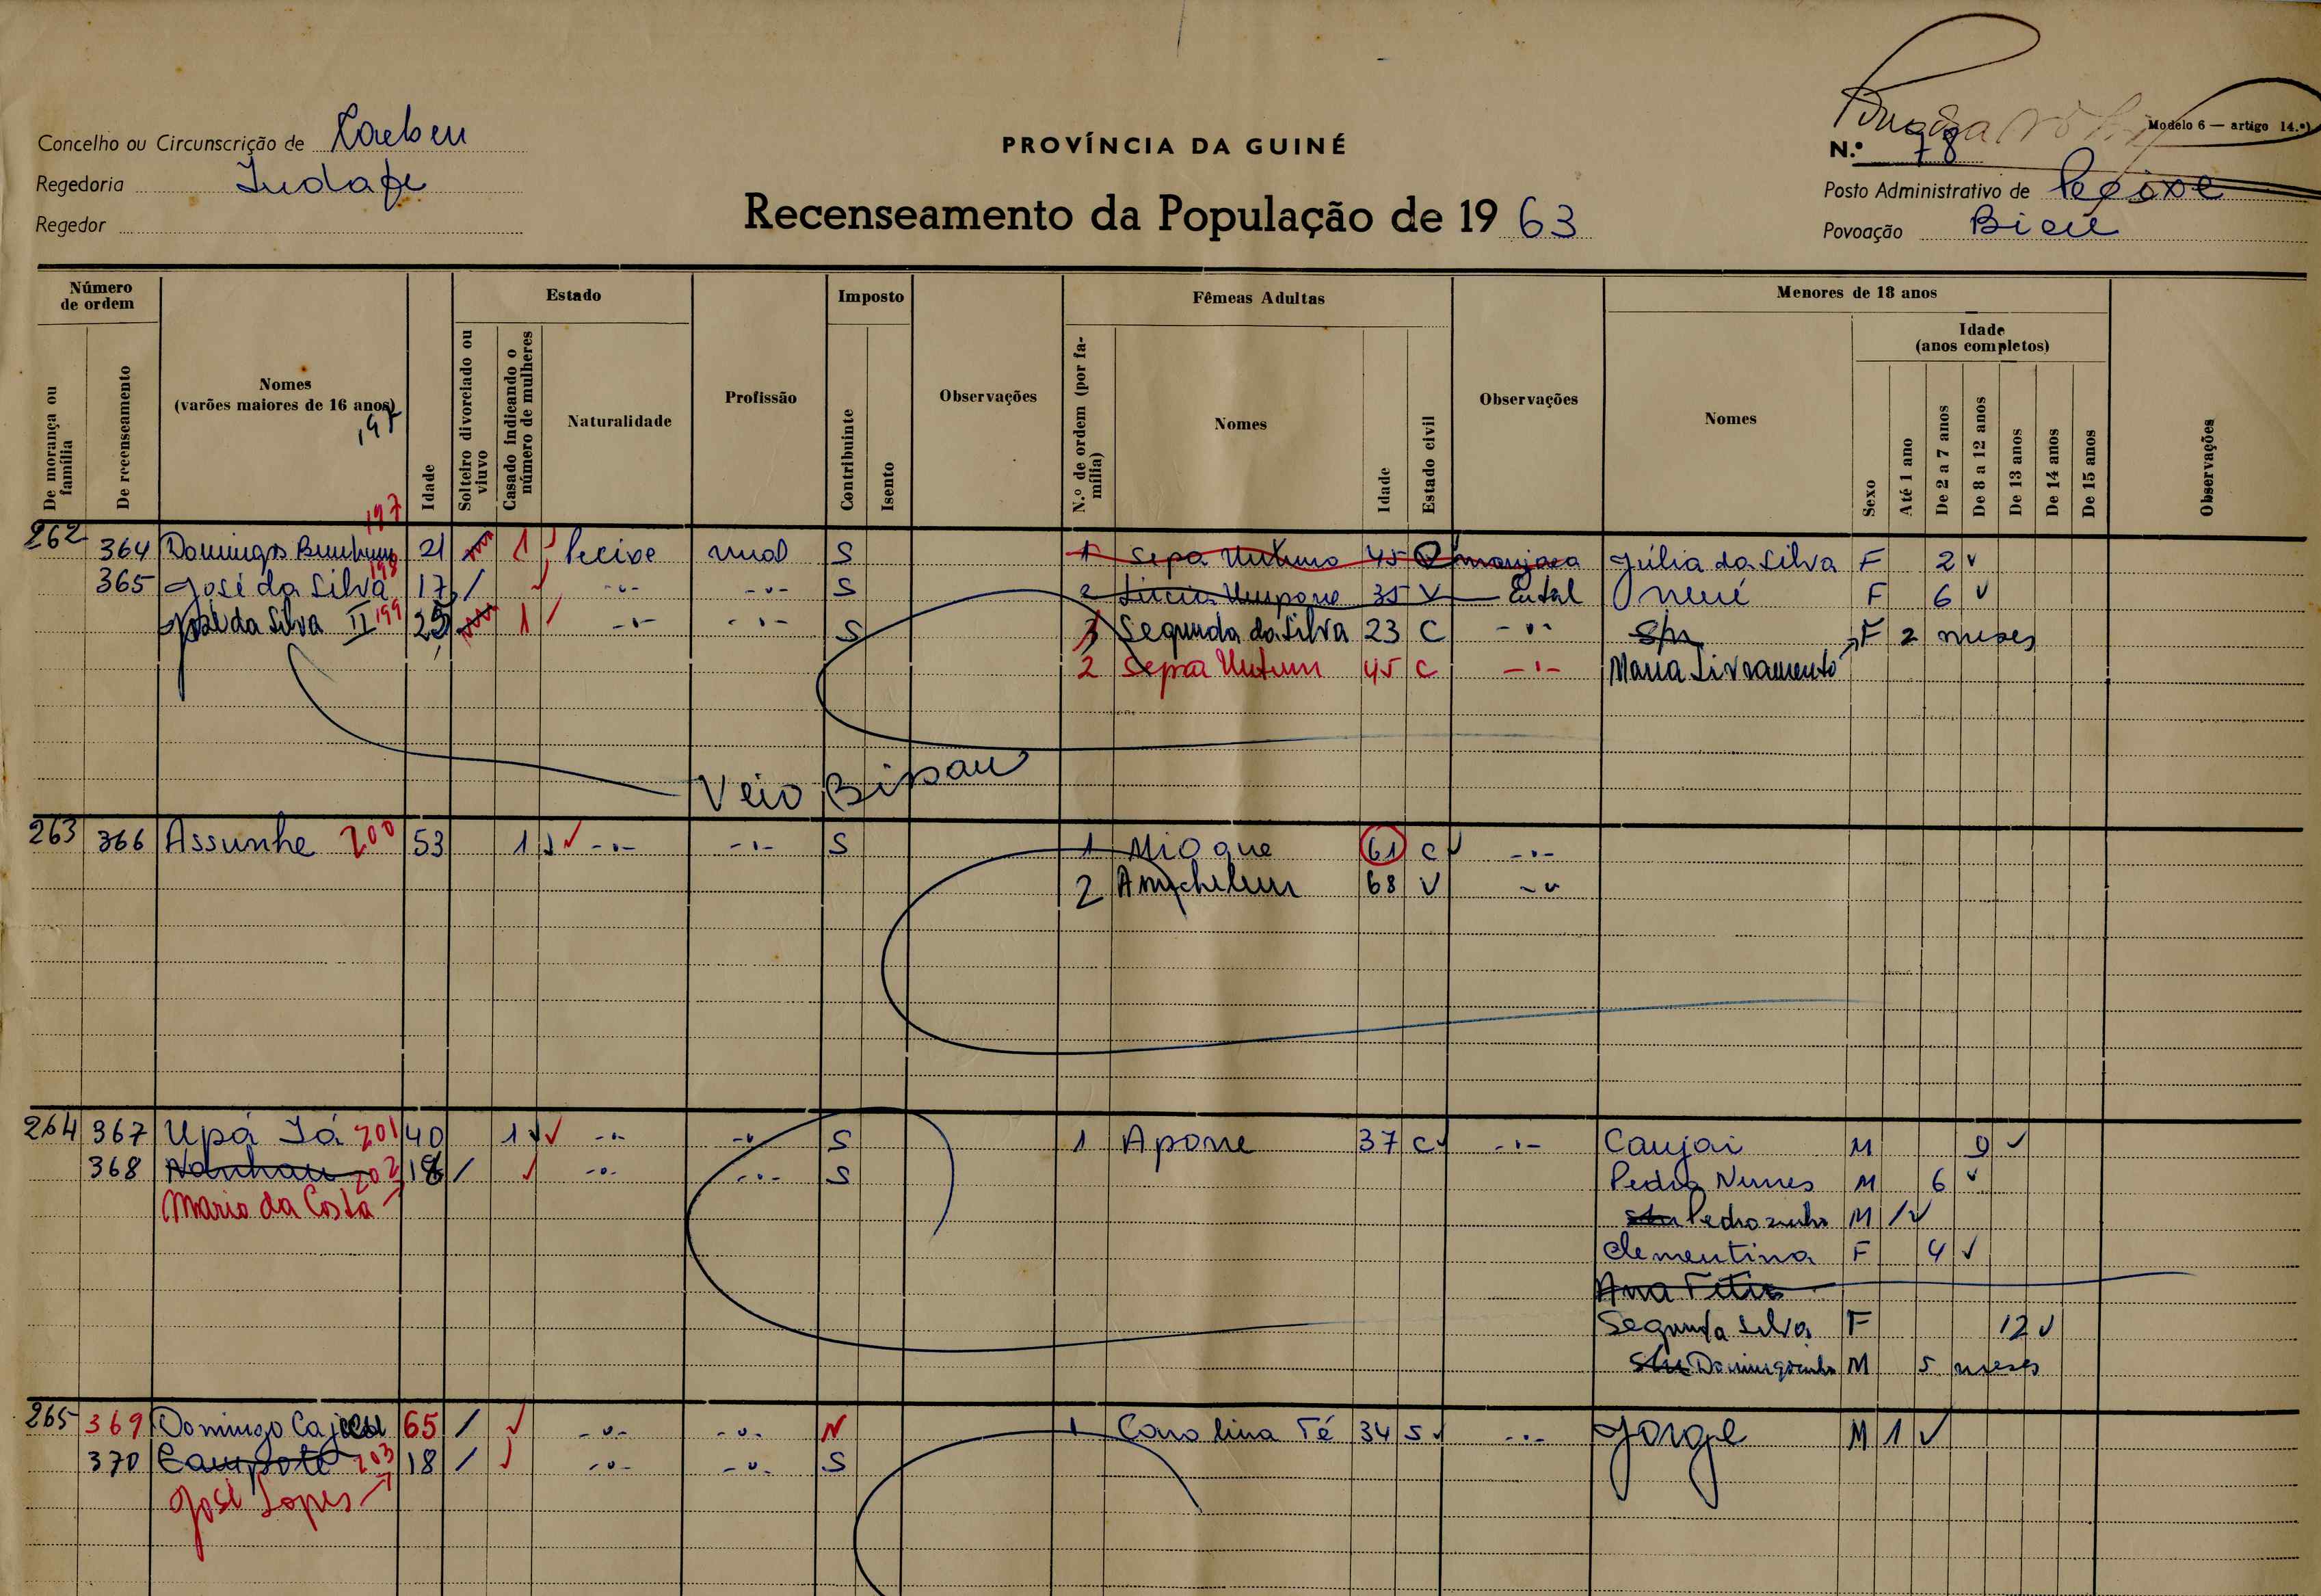 Modelo 6 — artigo 14.º)
Concelho ou Circunscrição de
PROVÍNCIA DA GUINÉ
N.º 78
Regedoria
Posto Administrativo de Pecixe
Recenseamento da População de 19 63
Regedor
Povoação
Número de ordem
Estado
Imposto
Fêmeas Adultas
Menores de 18 anos
Idade (anos completos)
De morança ou família
De recenseamento
Nomes (varões maiores de 16 anos)
197
Idade
Solteiro divorciado ou viuvo
Casado indicando o número de mulheres
Naturalidade
Profissão
Contribuinte
Isento
Observações
N.º de ordem (por família)
Nomes
Idade
Estado civil
Observações
Nomes
Sexo
Até 1 ano
De 2 a 7 anos
De 8 a 12 anos
De 13 anos
De 14 anos
De 15 anos
Observações
197
262 364 Domingos 21 1 Pecixe rural S 1 Sepa 45 manjaca Júlia da Silva F 2 v
365 José da Silva 198 17 / -"- -"- S 2 35 V F 6 v
José da Silva II 199 25 1 -"- -"- S 1 Segunda da Silva 23 C -"- S/n F 2 meses
2 Sepa 45 C -"- Maria Livramento
Veio Bissau
263 366 Assunhe 200 53 1 -"- -"- S 1 Mioque 61 C -"-
2 68 V -"-
264 367 Upá Iá 201 40 1 -"- -"- S 1 Apone 37 C -"- Caujai M 9
368 Nanhau 202 18 / -"- -"- S Pedro Nunes M 6
Mario da Costa S/n Pedrozinho M 1
Clementina F 4
Ana
Segunda Silva F 12
S/n Domingozinho M 5 meses
265 369 Domingo 65 / -"- -"- N 1 Carolina Té 34 S -"- Jorge M 1
370 Campote 203 18 / -"- -"- S
José Lopes